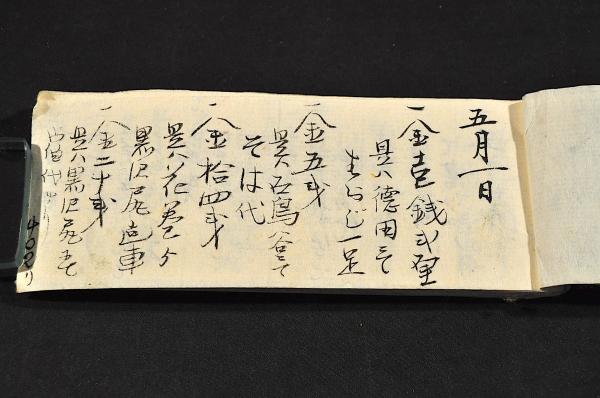 五月一日
一金壱銭弐厘
是ハ徳田ニて
わらじ一足
一金五銭
是ハ石鳥谷ニて
そば代
一金拾四銭
是ハ花巻ゟ
黒沢尻迄車
一金二十銭
是ハ黒沢尻ニて